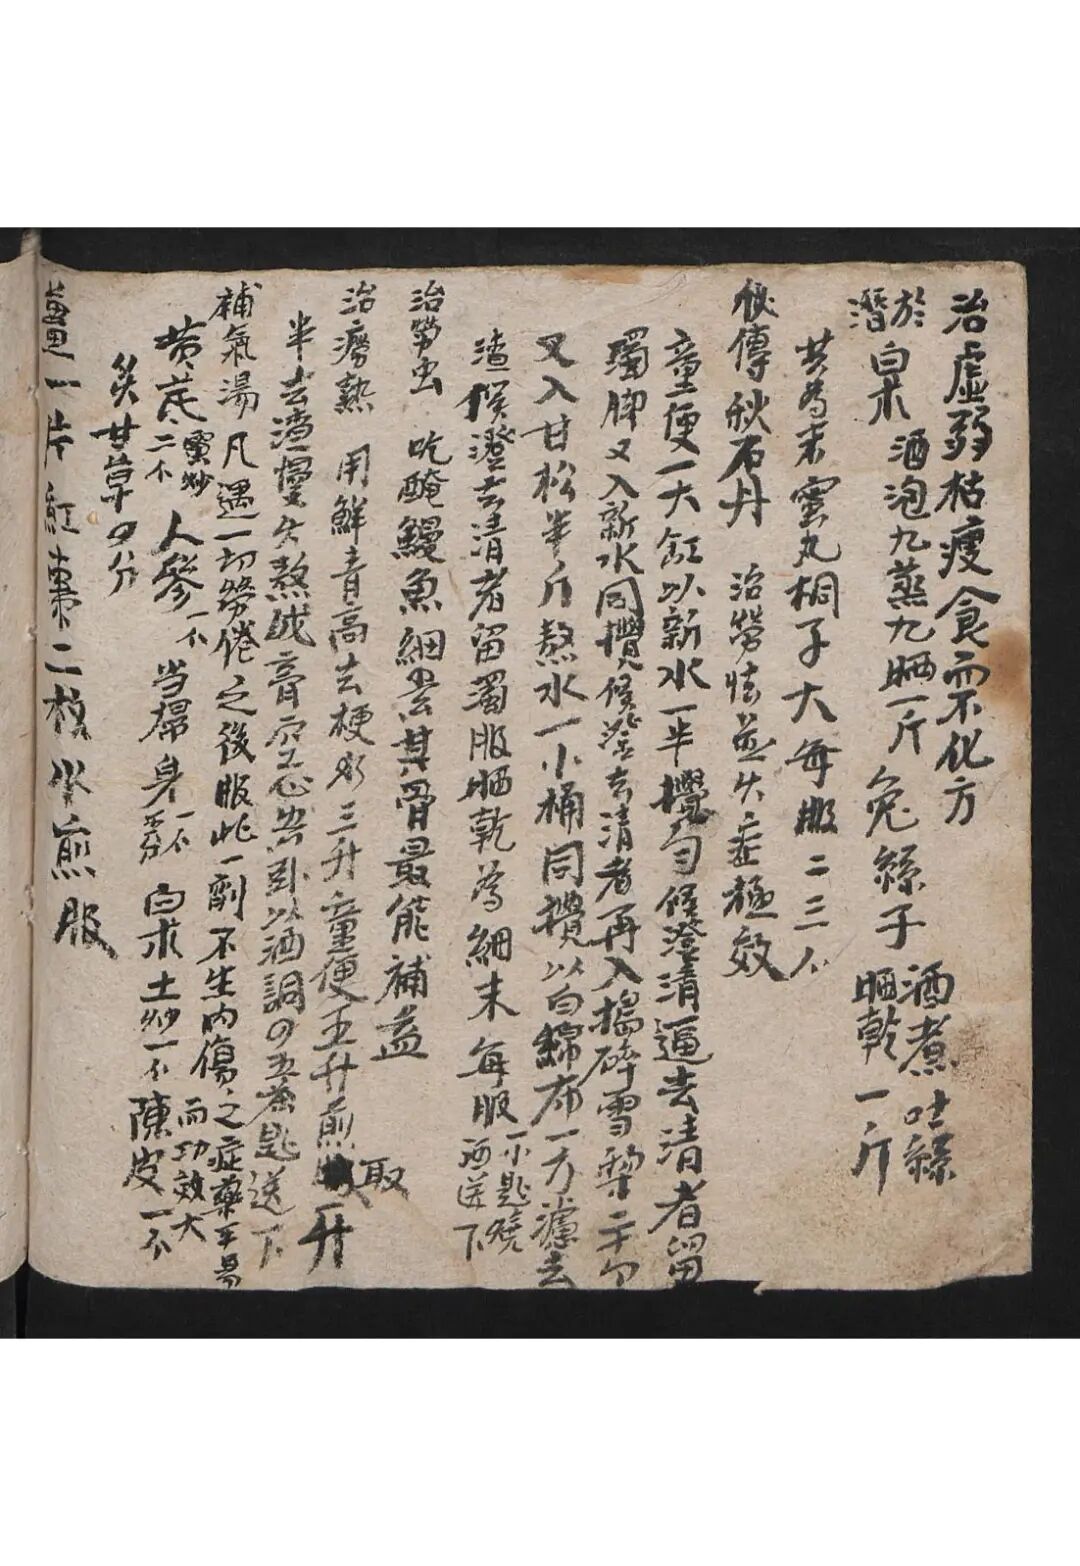 治虛弱枯瘦食而不化方
於潛白朮 酒泡九蒸九晒一斤 兔絲子 酒煮吐絲晒乾一斤
共為末蜜丸桐子大每服二三个
秘傳秋石丹 治勞怯並失症極效
童便一大缸以新水一半攪勻候澄清逼去清者留
濁脚又入新水同攪候澄去清者再入搗碎雪梨二十个
又入甘松半斤熬水一小桶同攪以白綿布一方濾去
渣候澄去清者留濁脚晒乾為細末每服一小匙燒酒送下
治勞虫 吃醃鰻魚細嚼其骨最能補益
治癆熱 用鮮青高去梗 三升童便五升煎取一升
半去渣慢火熬成膏 空心 以酒調四五茶匙送下
補氣湯凡遇一切勞倦之後服此一劑不生內傷之症藥平易而功效大
黃芪 蜜炒二个 人參一个 当歸身一个 白朮土炒一个 陳皮一个
炙甘草四分
薑一片紅棗二枚水煎服